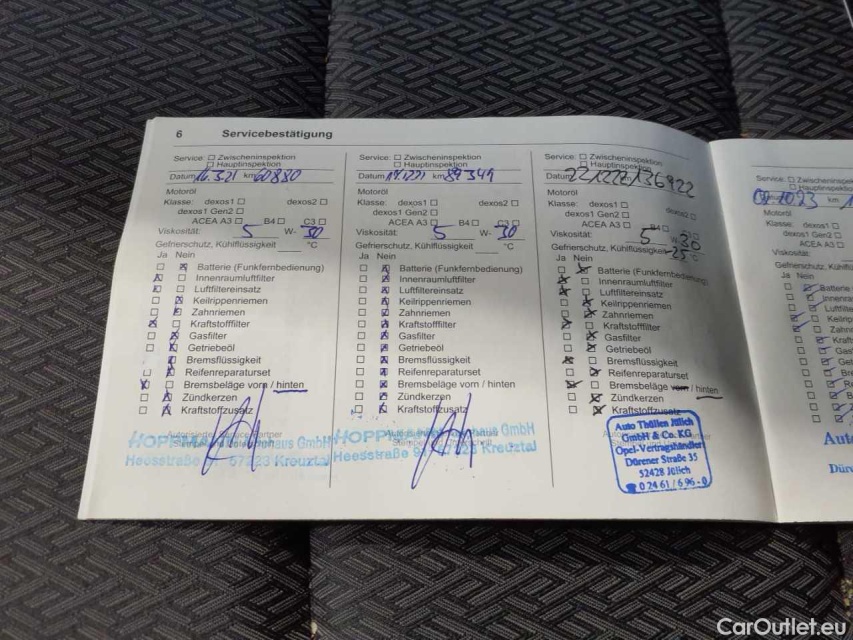 6 Servicebestätigung
Service: Zwischeninspektion
Hauptinspektion
Datum 16.3.21 km 60880
Motoröl
Klasse: dexos1 dexos2
dexos1 Gen2
ACEA A3 B4 C3
Viskosität: 5 W- 30
Gefrierschutz, Kühlflüssigkeit °C
Ja Nein
Batterie (Funkfernbedienung)
Innenraumluftfilter
Luftfiltereinsatz
Keilrippenriemen
Zahnriemen
Kraftstofffilter
Gasfilter
Getriebeöl
Bremsflüssigkeit
Reifenreparaturset
Bremsbeläge vorn / hinten
Zündkerzen
Kraftstoffzusatz
HOPPMANN Autohaus GmbH
Heesstraße 57223 Kreuztal
Service: Zwischeninspektion
Hauptinspektion
Datum km 89349
Motoröl
Klasse: dexos1 dexos2
dexos1 Gen2
ACEA A3 B4 C3
Viskosität: 5 W- 30
Gefrierschutz, Kühlflüssigkeit °C
Ja Nein
Batterie (Funkfernbedienung)
Innenraumluftfilter
Luftfiltereinsatz
Keilrippenriemen
Zahnriemen
Kraftstofffilter
Gasfilter
Getriebeöl
Bremsflüssigkeit
Reifenreparaturset
Bremsbeläge vorn / hinten
Zündkerzen
Kraftstoffzusatz
HOPPMANN Autohaus GmbH
Heesstraße Kreuztal
Service: Zwischeninspektion
Hauptinspektion
Datum 22/12/22/136922
Motoröl
Klasse: dexos1 dexos2
dexos1 Gen2
ACEA A3 B4
Viskosität: 5 30
Gefrierschutz, Kühlflüssigkeit -25 °C
Ja Nein
Batterie (Funkfernbedienung)
Innenraumluftfilter
Luftfiltereinsatz
Keilrippenriemen
Zahnriemen
Kraftstofffilter
Gasfilter
Getriebeöl
Bremsflüssigkeit
Reifenreparaturset
Bremsbeläge vorn / hinten
Zündkerzen
Kraftstoffzusatz
Auto Thüllen Jülich
GmbH & Co. KG
Opel-Vertragshändler
Dürener Straße 35
52428 Jülich
0 24 61 / 6 96 - 0
km
Motoröl
Klasse: dexos1
dexos1 Gen2
ACEA A3
Viskosität:
Gefrierschutz, Kühlflüss
Ja Nein
Batterie
Innenra
Luftfilte
Keilrip
Zahnr
Kraft
Gas
Get
Bre
Re
Aut
Dür
CarOutlet.eu